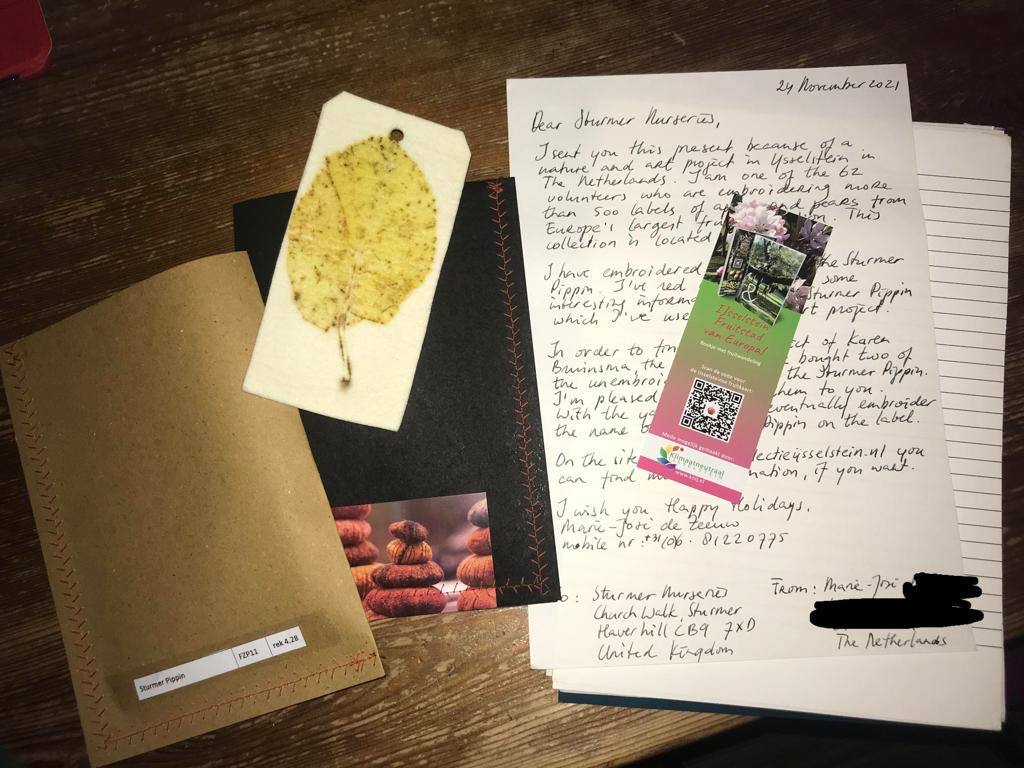 24 November 2021
Dear Sturmer Nurseries,
I sent you this present because of a
nature and art project in IJsselstein in
The Netherlands. I am one of the 62
volunteers who are embroidering more
than 500 labels of and pears from
Europe's largest This
collection is located
I have embroidered the Sturmer
Pippin. I've red some
interesting Sturmer Pippin
which I've art project.
In order to of Karen
Bruinsma, the bought two of
the the Sturmer Pippin.
I'm pleased them to you.
With the eventually embroider
the name Pippin on the label.
On the site you
can find if you want.
I wish you Happy Holidays,
Marie-José de Leeuw
mobile nr: +31/06 - 81220775
Sturmer Nurseries
Church Walk, Sturmer
Haverhill CB9 7XD
United Kingdom
From: Marie-José
The Netherlands
IJsselstein
Fruitstad
van Europa!
Boekje met fruitwandeling
Scan de code voor
de IJsselsteinse fruitkaart:
Mede mogelijk gemaakt door:
Klimaatneutraal
www.knij.nl
Sturmer Pippin FZP11 rek 4.28